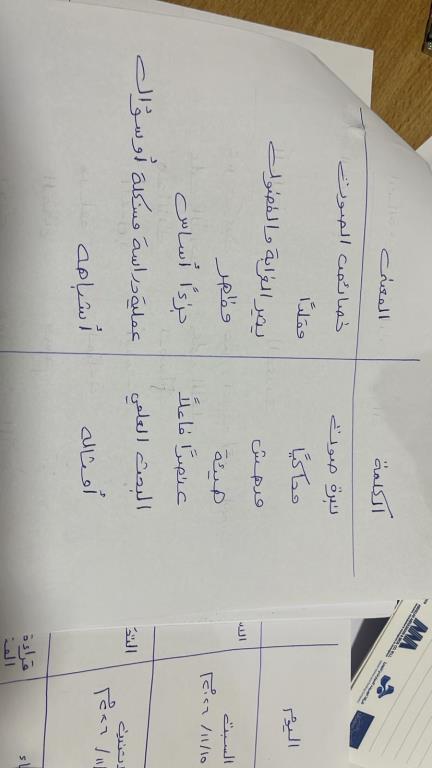 الكلمة	المعنى
نبرة صوت	خصائص الصوت
محاكيًا	مقلدًا
مدهش	يثير الغرابة والفضول
هيئة	مظهر
عنصرًا فاعلًا	جزءًا أساس
البحث العلمي	عملية دراسة مشكلة أو سؤال
أمثاله	أشباهه
اليوم
السبت
قراءة